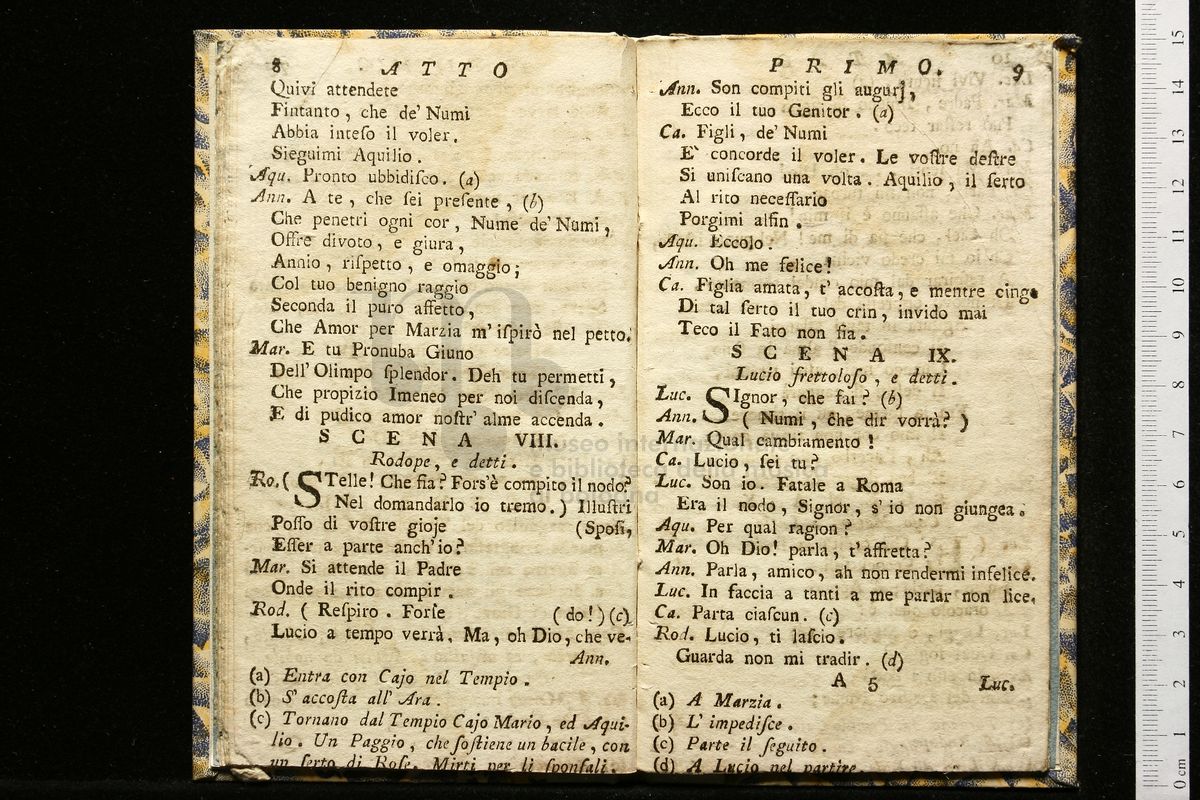 8 ATTO
Quivi attendete
Fintanto, che de' Numi
Abbia inteſo il voler.
Sieguimi Aquilio.
Aqu. Pronto ubbidiſco. (a)
Ann. A te, che ſei preſente, (b)
Che penetri ogni cor, Nume de' Numi,
Offre divoto, e giura,
Annio, riſpetto, e omaggio;
Col tuo benigno raggio
Seconda il puro affetto,
Che Amor per Marzia m'iſpirò nel petto.
Mar. E tu Pronuba Giuno
Dell'Olimpo ſplendor. Deh tu permetti,
Che propizio Imeneo per noi diſcenda,
E di pudico amor noſtr' alme accenda.
SCENA VIII.
Rodope, e detti.
Ro. ( STelle! Che fia? Fors'è compito il nodo?
Nel domandarlo io tremo.) Illuſtri
Poſſo di voſtre gioje (Spoſi,
Eſſer a parte anch'io?
Mar. Si attende il Padre
Onde il rito compir.
Rod. ( Reſpiro. Forſe (do!)(c)
Lucio a tempo verrà, Ma, oh Dio, che ve-
Ann.
(a) Entra con Cajo nel Tempio.
(b) S'accoſta all' Ara.
(c) Tornano dal Tempio Cajo Mario, ed Aqui-
lio. Un Paggio, che ſoſtiene un bacile, con
un ſerto di Roſe. Mirti per li ſponſali.
PRIMO. 9
Ann. Son compiti gli augurj,
Ecco il tuo Genitor. (a)
Ca. Figli, de' Numi
E` concorde il voler. Le voſtre deſtre
Si uniſcano una volta. Aquilio, il ſerto
Al rito neceſſario
Porgimi alfin.
Aqu. Eccolo.
Ann. Oh me felice!
Ca. Figlia amata, t' accoſta, e mentre cinge
Di tal ſerto il tuo crin, invido mai
Teco il Fato non ſia.
SCENA IX.
Lucio frettoloſo, e detti.
Luc. SIgnor, che fai? (b)
Ann. ( Numi, che dir vorrà? )
Mar. Qual cambiamento!
Ca. Lucio, ſei tu?
Luc. Son io. Fatale a Roma
Era il nodo, Signor, s' io non giungea.
Aqu. Per qual ragion?
Mar. Oh Dio! parla, t'affretta?
Ann. Parla, amico, ah non rendermi infelice.
Luc. In faccia a tanti a me parlar non lice.
Ca. Parta ciaſcun. (c)
Rod. Lucio, ti laſcio.
Guarda non mi tradir. (d)
A 5 Luc.
(a) A Marzia.
(b) L' impediſce.
(c) Parte il ſeguito.
(d) A Lucio nel partire.
museo internazionale
e biblioteca della musica
di bologna
0 cm 1 2 3 4 5 6 7 8 9 10 11 12 13 14 15